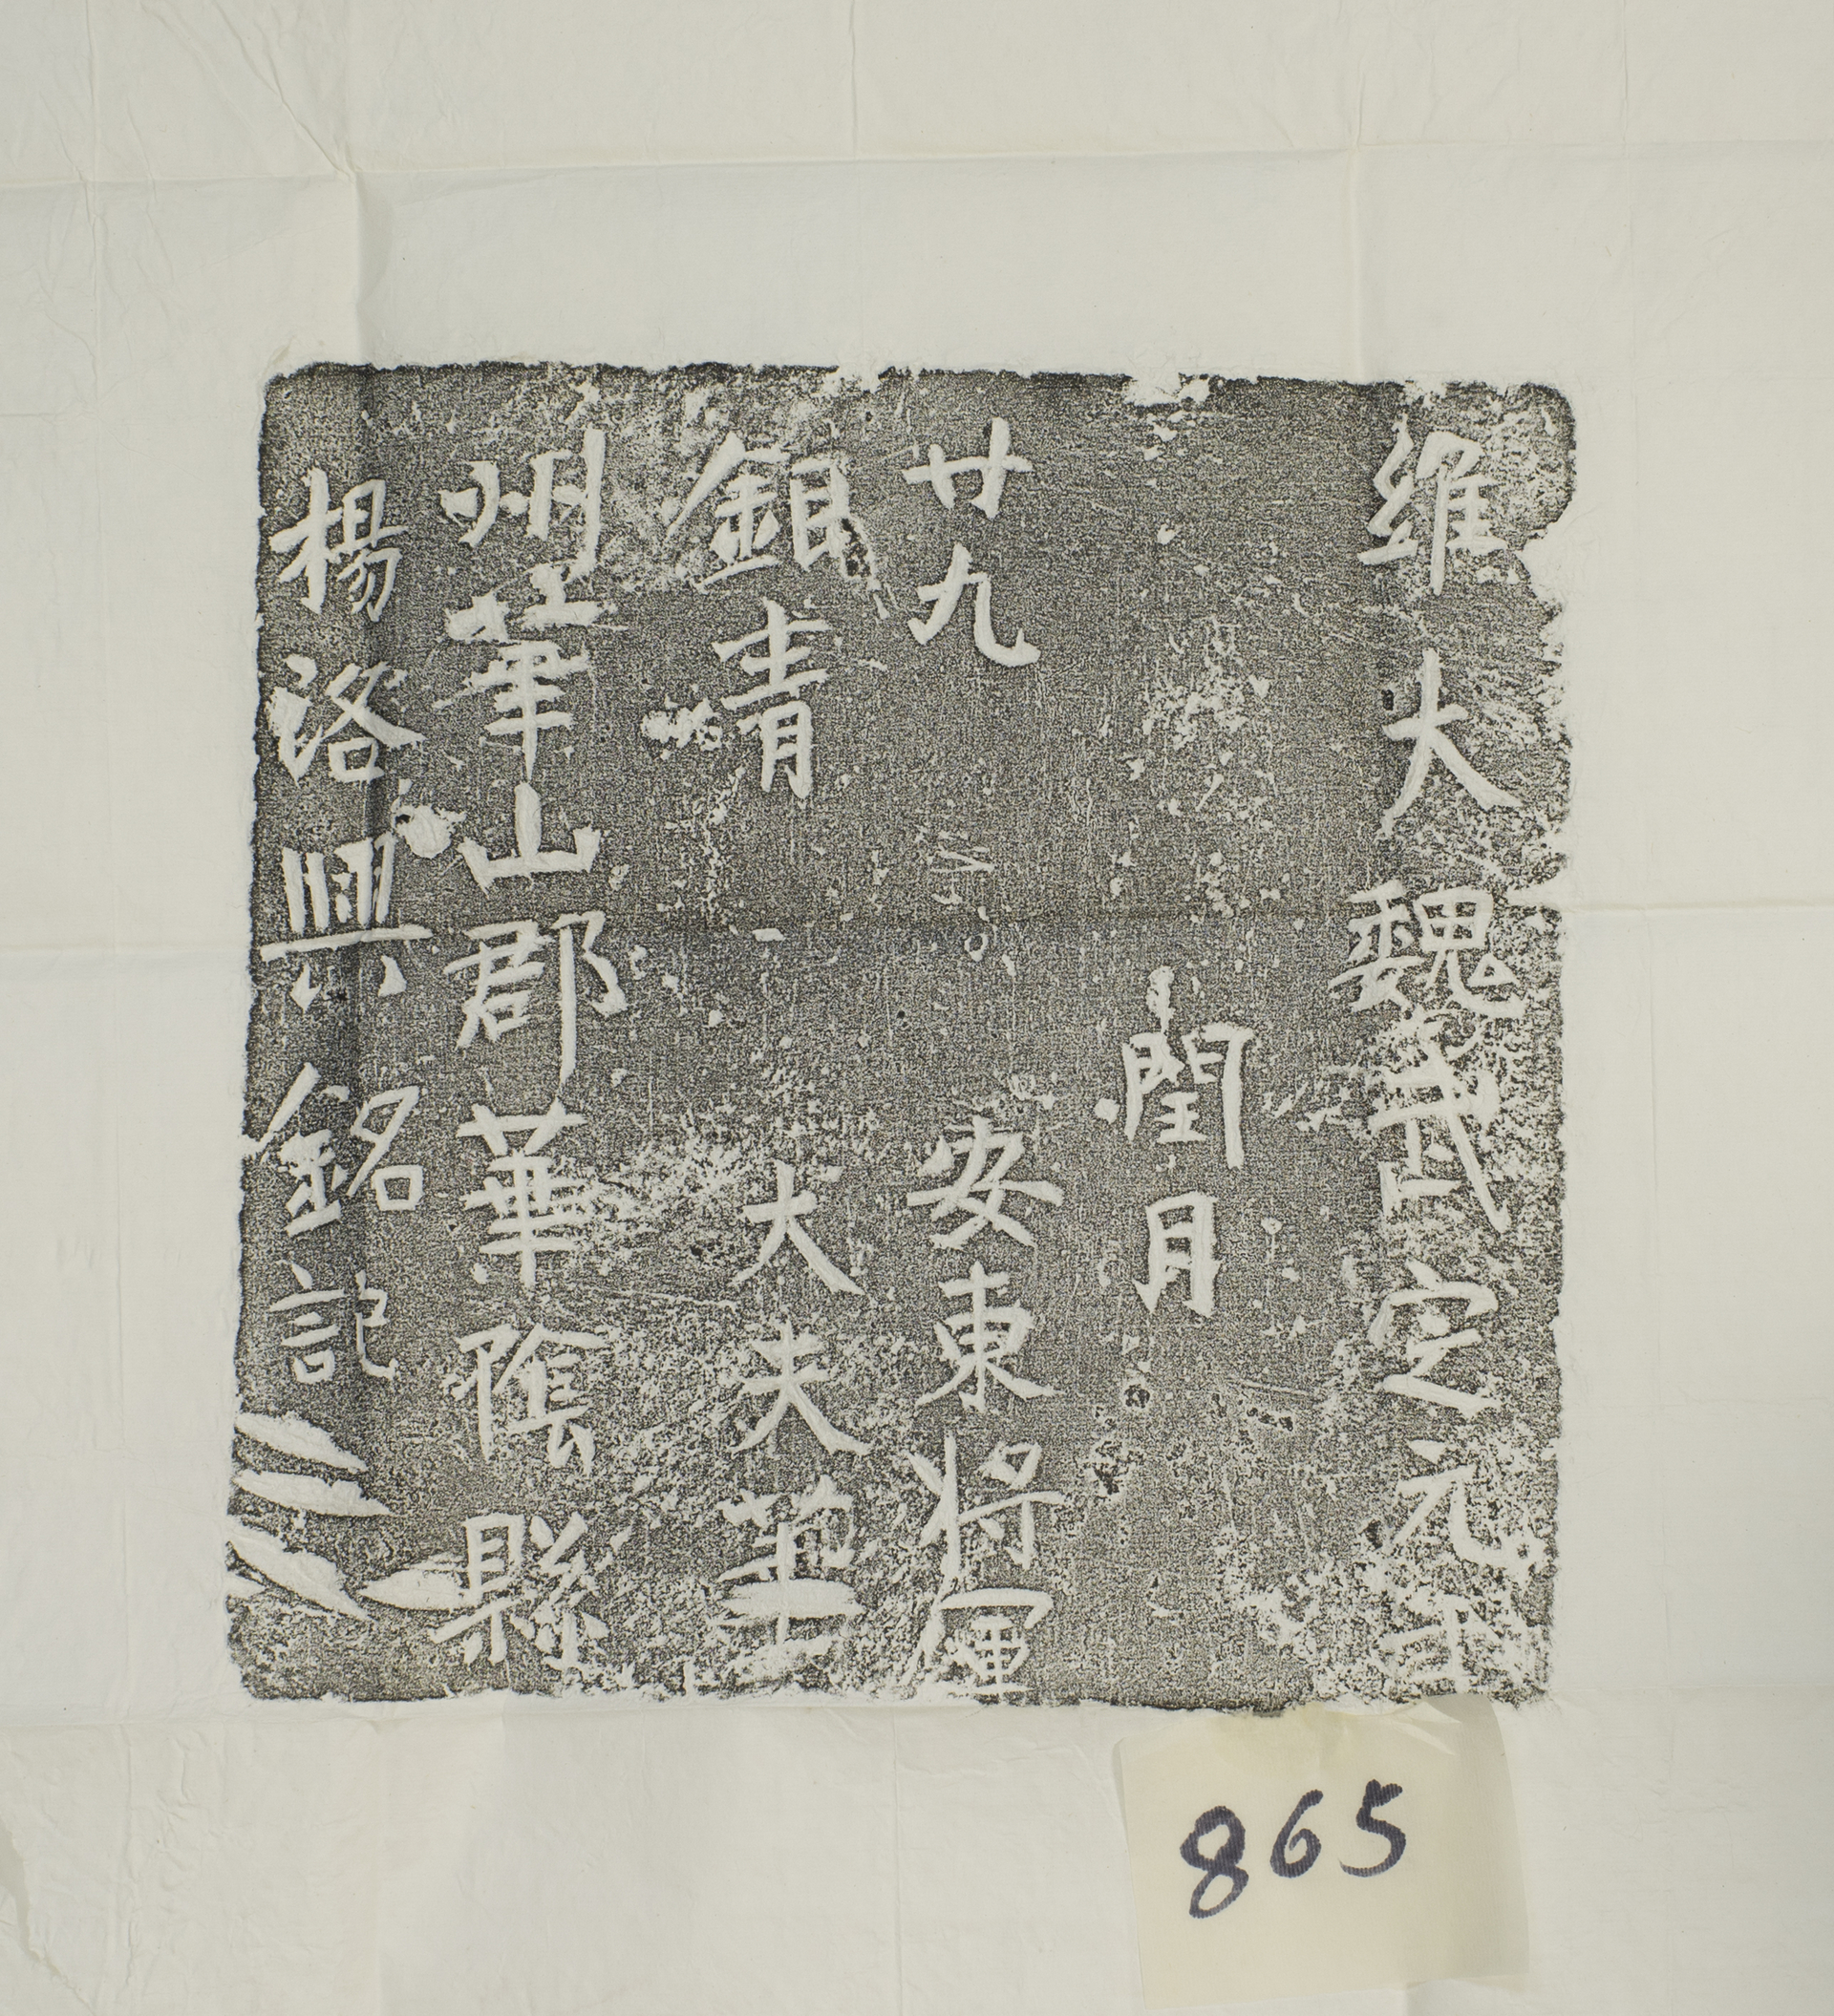 維大魏武定元年
閏月
廿九 安東將軍
銀青 大夫華
州華山郡華陰縣
楊洛興銘記
865